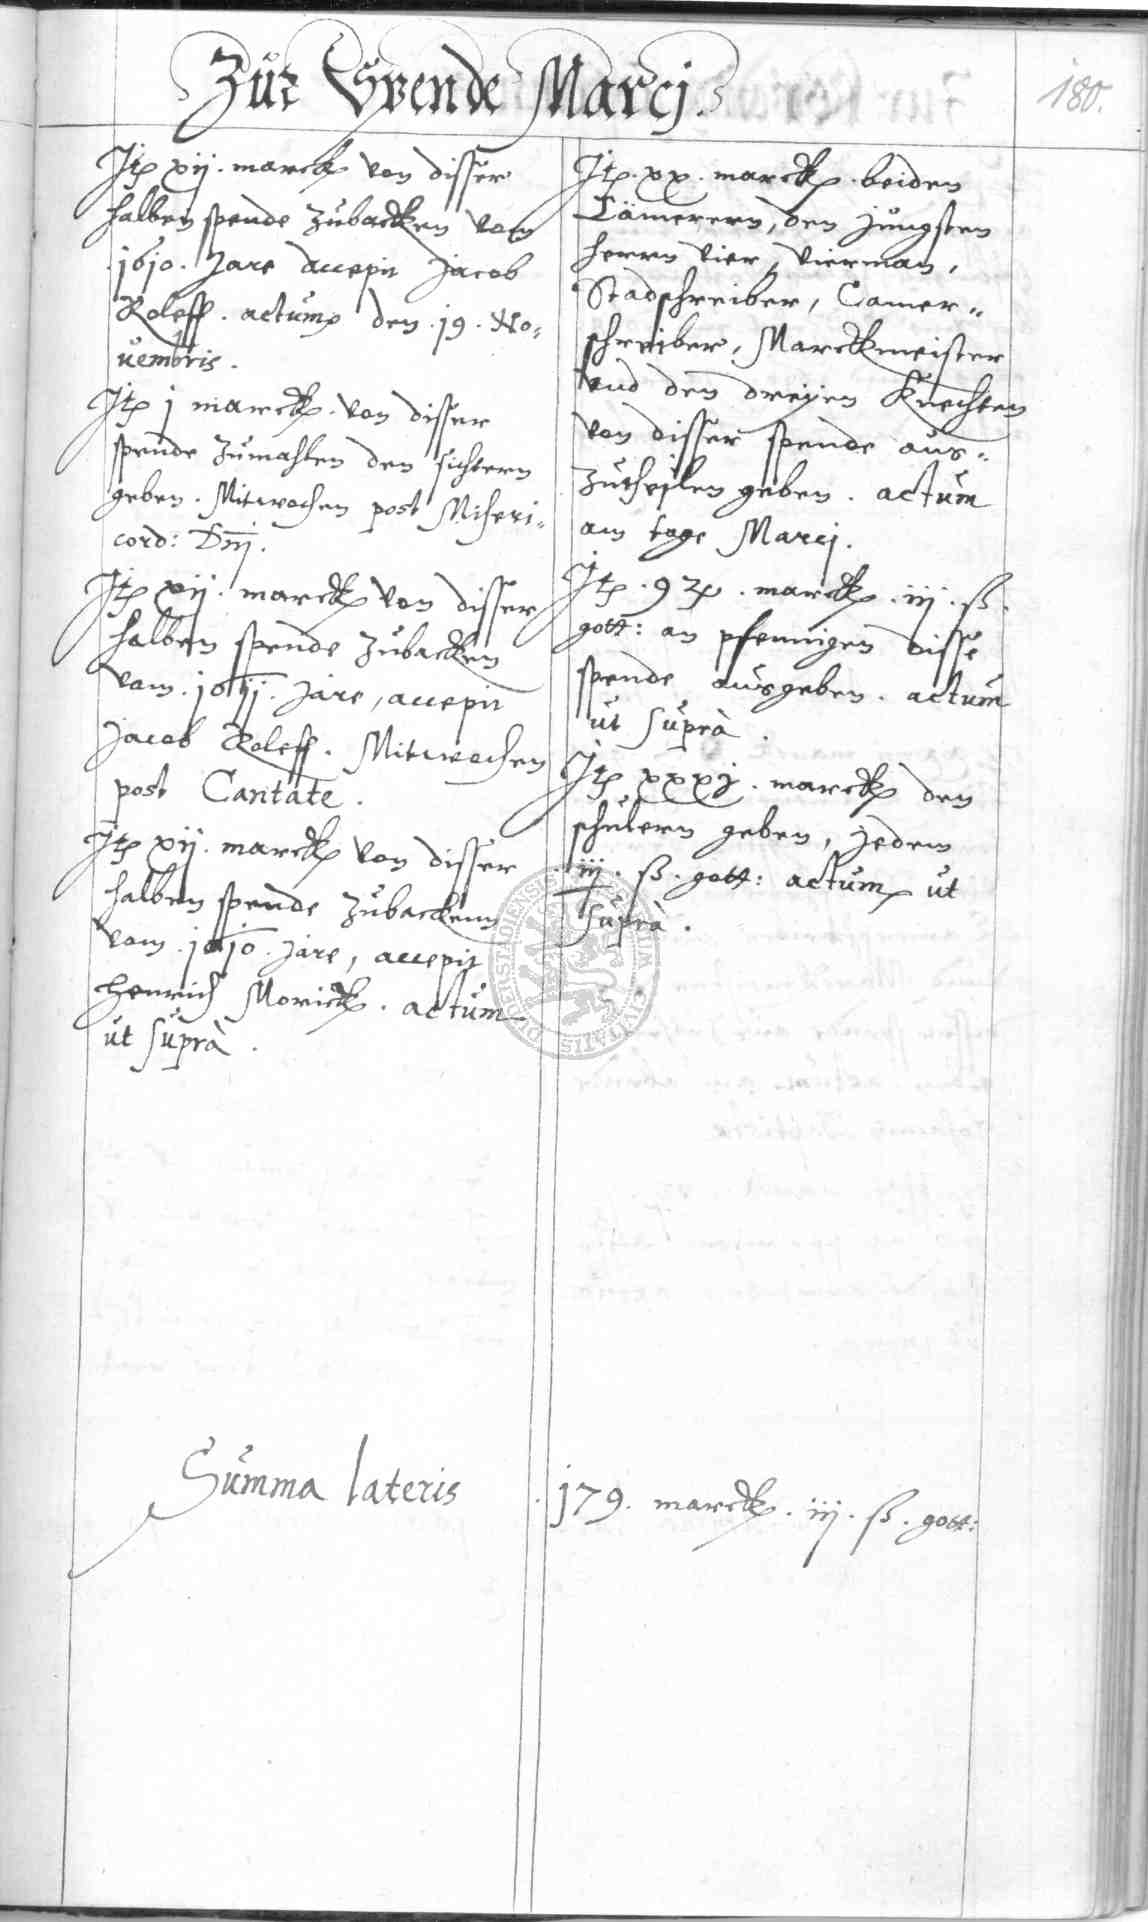 Zur Spende Marcj.
180.
Itp xij. marck von disser
halben spende zubacken vom
.1610. Jare accepit Jacob
Roleff. actum den .19. No⸗
uembris.
Itp j marck. von disser
spende zumahlen den sichtern
geben. Mitwochen post Miseri⸗
cord: Dnj.
Itp xij. marck von disser
halben spende zubacken
vam .1611. Jare, accepit
Jacob Roleff. Mitwochen
post Cantate.
Itp xij. marck von disser
halben spende zubackenn
vom .1610. Jare, accepit
Henrich Morick. actum
ut suprà.
Itp. xx. marck. beiden
Cämerern, den jungsten
herrn vier, vierman,
Stadschreiber, Camer⸗
schreiber, Marckmeister
vnd den dreyen Knechten
von disser spende aus⸗
zutheilen geben. actum
am tage Marcj.
Itp. 92. marck. iij. ß.
gott: an pfennigen disse
spende ausgeben. actum
ut suprà.
Itp xxxj. marck den
schulern geben, jedem
iij. ß. gott: actum ut
suprà.
Summa lateris .179. marck. iij. ß. gott: